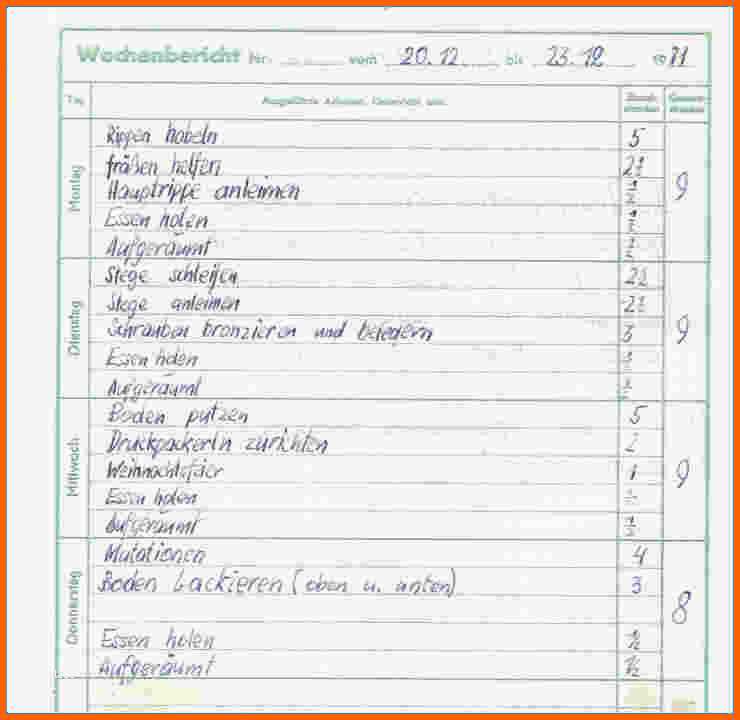 Wochenbericht Nr. vom 20.12. bis 23.12 19 71
Tag Ausgeführte Arbeiten, Unterricht usw. Einzel- Gesamt-
stunden stunden
Montag
Rippen hobeln 5
fräßen helfen 2½
Hauptrippe anleimen ½ 9
Essen holen ½
Aufgeräumt ½
Dienstag
Stege schleifen 2½
Stege anleimen 2½
Schrauben bronzieren und beledern 3 9
Essen holen ½
Aufgeräumt ½
Mittwoch
Boden putzen 5
Druckpackerln zurichten 2
Weihnachtsfeier 1 9
Essen holen ½
Aufgeräumt ½
Donnerstag
Mutationen 4
Boden Lackieren (oben u. unten) 3
8
Essen holen ½
Aufgeräumt ½